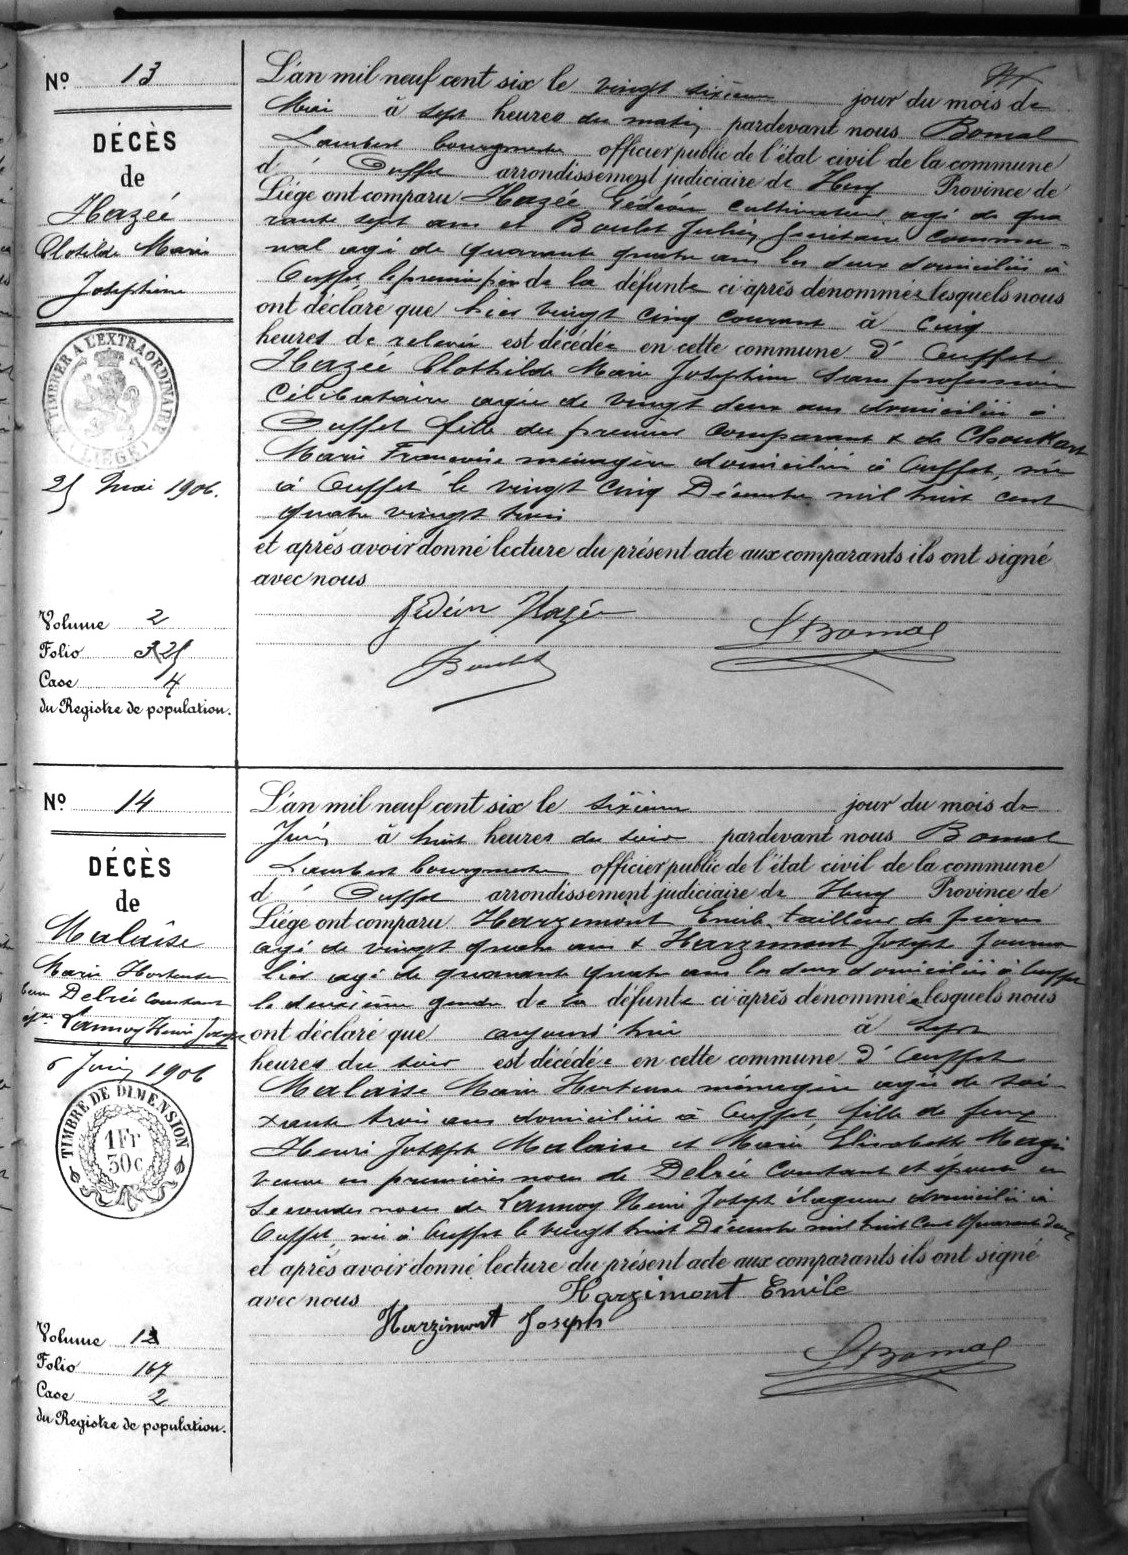 N° 13
DÉCÈS
de
Hazée
Clotilde Marie
Joséphine
TIMBRE A L'EXTRAORDINAIRE
LIÈGE
25 Mai 1906.
Volume 2
Folio 25
Case 4
du Registre de population.
L'an mil neuf cent six le vingt sixième jour du mois de
Mai à sept heures du matin pardevant nous Bomal
Lambert bourgmestre officier public de l'état civil de la commune
d' Ouffet arrondissement judiciaire de Huy Province de
Liége ont comparu Hazée Gédéon cultivateur agé de qua
rante sept ans et Boulet Julien secrétaire commu-
nal agé de quarante quatre ans les deux domiciliés à
Ouffet, le premier père de la défunte ci après dénommée lesquels nous
ont déclaré que hier vingt cinq courant à cinq
heures de relevée est décédée en cette commune d' Ouffet
Hazée Clothilde Marie Joséphine sans profession
célibataire agée de vingt deux ans domiciliée à
Ouffet fille du premier comparant & de
Marie Françoise ménagère domiciliée à Ouffet, née
à Ouffet le vingt cinq Décembre mil huit cent
quatre vingt trois
et après avoir donné lecture du présent acte aux comparants ils ont signé
avec nous
Gédéon Hazée
L Bomal
Boulet
N° 14
DÉCÈS
de
Malaise
Marie Hortense
veuve Delrée Constant
épse Lannoy Henri Joseph
6 Juin 1906
TIMBRE DE DIMENSION
1 Fr
30 c
Volume 12
Folio 167
Case 2
du Registre de population.
L'an mil neuf cent six le sixième jour du mois de
Juin à huit heures du soir pardevant nous Bomal
Lambert bourgmestre officier public de l'état civil de la commune
d' Ouffet arrondissement judiciaire de Huy Province de
Liége ont comparu Harzimont Emile tailleur de pierres
agé de vingt quatre ans & Harzimont Joseph journa
lier agé de quarante quatre ans les deux domiciliés à Ouffet
le deuxième gendre de la défunte ci après dénommée lesquels nous
ont déclaré que aujourd'hui à sept
heures du soir est décédée en cette commune d' Ouffet
Malaise Marie Hortense ménagère agée de soi-
xante trois ans domiciliée à Ouffet, fille de feux
Henri Joseph Malaise et Marie Elisabeth
veuve en premières noces de Delrée Constant et épouse en
secondes noces de Lannoy Henri Joseph élagueur domicilié à
Ouffet, née à Ouffet le vingt huit Décembre mil huit cent quarante deux
et après avoir donné lecture du présent acte aux comparants ils ont signé
avec nous Harzimont Emile
Harzimont Joseph
L Bomal